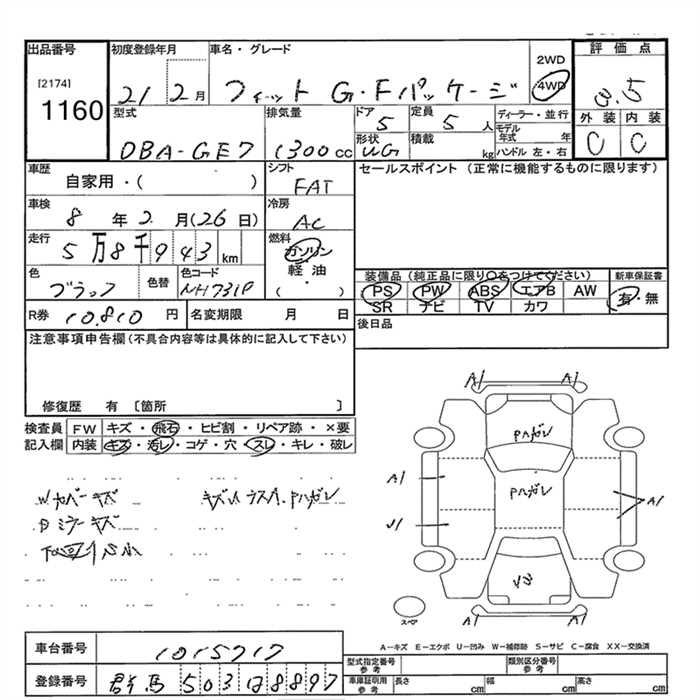 出品番号
[2174]
1160
初度登録年月
21 2月
車名・グレード
フィット G・Fパッケージ
2WD
4WD
評価点
3.5
外装 内装
C C
型式
DBA-GE7
排気量
1300cc
ドア
5
定員
5人
形状
UG
積載
kg
ディーラー・並行
モデル年式 年
ハンドル 左・右
車歴
自家用・( )
シフト
FAT
セールスポイント (正常に機能するものに限ります)
車検
8年2月(26日)
冷房
AC
走行
5万8千943km
燃料
ガソリン
軽油
( ・ )
色
ブラック
色替
色コード
NH731P
装備品(純正品に限り○をつけてください)
PS PW ABS エアB AW
SR ナビ TV カワ
新車保証書
有・無
R券
10,810円
名変期限 月 日
後日品
注意事項申告欄(不具合内容等は具体的に記入して下さい)
修復歴 有 〔箇所 〕
検査員記入欄
FW キズ・飛石・ヒビ割・リペア跡・×要
内装 キズ・汚レ・コゲ・穴・スレ・キレ・破レ
Wカバーキズ
キズ Pハガレ
ミラーキズ
A1 A1
Pハガレ
Pハガレ
A1
A1
スペア
A1
A-キズ E-エクボ U-凹み W-補修跡 S-サビ C-腐食 XX-交換済
車台番号
1015717
登録番号
群馬 503 8897
型式指定番号参考
類別区分番号参考
車庫証明用参考
長さ cm 幅 cm 高さ cm